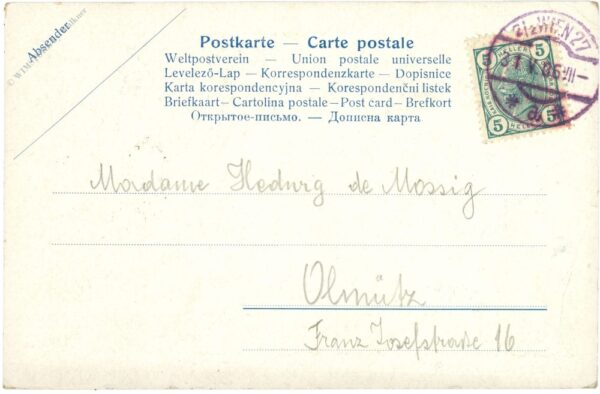 Absender
Postkarte — Carte postale
Weltpostverein — Union postale universelle
Levelező-Lap — Korrespondenzkarte — Dopisnice
Karta korespondencyjna — Korespondenční listek
Briefkaart — Cartolina postale — Post card — Brefkort
Открытое-письмо. — Дописна карта
HELLER
5 5
5 5
HELLER
2/2 WIEN 27
* d *
Madame Hedwig de Mossig
Olmütz
Franz Josefstraße 16